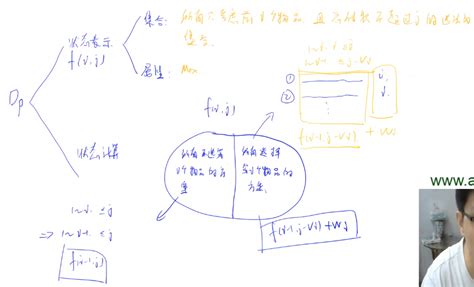 集合: 所有只考虑前i个物品, 且总体积不超过j的选法的
集合.
状态表示
f(i,j)
属性: Max
Dp
1~i ≤j
1~i-1 ≤j-vi
①
②
f(i-1,j-vi) + wi
f(i,j)
所有不选第
i个物品的方
案
所有选择
第i个物品的
方案.
状态计算
1~i ≤j
=> 1~i-1 ≤j
f(i-1,j)
f(i-1,j-vi)+wi
www.a